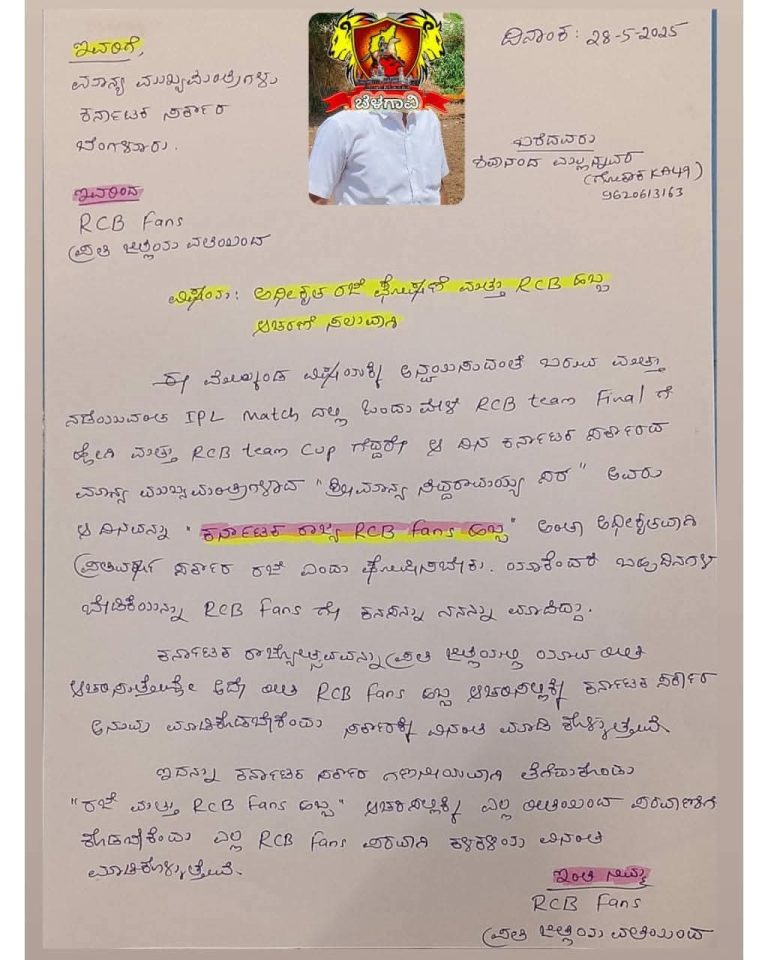 ದಿನಾಂಕ: 28-5-2025
ಇವರಿಗೆ,
ಮಾನ್ಯ ಮುಖ್ಯಮಂತ್ರಿಗಳು
ಕರ್ನಾಟಕ ಸರ್ಕಾರ
ಬೆಂಗಳೂರು.
ಬೆಳಗಾವಿ
ಬರೆದವರು
ಶಿವಾನಂದ ಮಲ್ಲನ್ನವರ
(ಗೋಕಾಕ KA49)
9620613163
ಇವರಿಂದ
RCB Fans
ಪ್ರತಿ ಜಿಲ್ಲೆಯ ವತಿಯಿಂದ
ವಿಷಯ: ಅಧೀಕೃತ ರಜೆ ಘೋಷಣೆ ಮತ್ತು RCB ಹಬ್ಬ
ಆಚರಣೆ ಸಲುವಾಗಿ
ಈ ಮೇಲ್ಕಂಡ ವಿಷಯಕ್ಕೆ ಅನ್ವಯಿಸುವಂತೆ ಬರುವ ಮತ್ತು
ನಡೆಯುವಂತ IPL Match ದಲ್ಲಿ ಒಂದು ವೇಳೆ RCB team Final ಗೆ
ಹೋಗಿ ಮತ್ತು RCB team Cup ಗೆದ್ದರೇ ಆ ದಿನ ಕರ್ನಾಟಕ ಸರ್ಕಾರದ
ಮಾನ್ಯ ಮುಖ್ಯಮಂತ್ರಿಗಳಾದ "ಶ್ರೀಮಾನ್ಯ ಸಿದ್ದರಾಮಯ್ಯ ಸರ" ಅವರು
ಆ ದಿನವನ್ನು "ಕರ್ನಾಟಕ ರಾಜ್ಯ RCB Fans ಹಬ್ಬ" ಅಂತಾ ಅಧೀಕೃತವಾಗಿ
ಪ್ರತಿವರ್ಷ ಸರ್ಕಾರ ರಜೆ ಎಂದು ಘೋಷಿಸಬೇಕು. ಯಾಕೆಂದರೆ ಬಹುದಿನಗಳ
ಬೇಡಿಕೆಯನ್ನು RCB Fans ಗೇ ಕನಸನ್ನು ನನಸನ್ನು ಮಾಡಿದ್ದು.
ಕರ್ನಾಟಕ ರಾಜ್ಯೋತ್ಸವವನ್ನು ಪ್ರತಿ ಜಿಲ್ಲೆಯಲ್ಲಿ ಯಾವ ರೀತಿ
ಆಚರಿಸುತ್ತೇವೋ ಅದೇ ರೀತಿ RCB Fans ಹಬ್ಬ ಆಚರಿಸಲಿಕ್ಕೆ ಕರ್ನಾಟಕ ಸರ್ಕಾರ
ಅನುವು ಮಾಡಿಕೊಡಬೇಕೆಂದು ಸರ್ಕಾರಕ್ಕೆ ವಿನಂತಿ ಮಾಡಿ ಕೊಳ್ಳುತ್ತೇವೆ.
ಇದನ್ನು ಕರ್ನಾಟಕ ಸರ್ಕಾರ ಗಣನೀಯವಾಗಿ ತೆಗೆದುಕೊಂಡು
"ರಜೆ ಮತ್ತು RCB Fans ಹಬ್ಬ" ಆಚರಿಸಲಿಕ್ಕೆ ಎಲ್ಲ ರೀತಿಯಿಂದ ಪರವಾಣಿಗೆ
ಕೊಡಬೇಕೆಂದು ಎಲ್ಲ RCB Fans ಪರವಾಗಿ ಕಳಕಳಿಯ ವಿನಂತಿ
ಮಾಡಿಕೊಳ್ಳುತ್ತೇವೆ.
ಇಂತಿ ನಿಮ್ಮ
RCB Fans
ಪ್ರತಿ ಜಿಲ್ಲೆಯ ವತಿಯಿಂದ